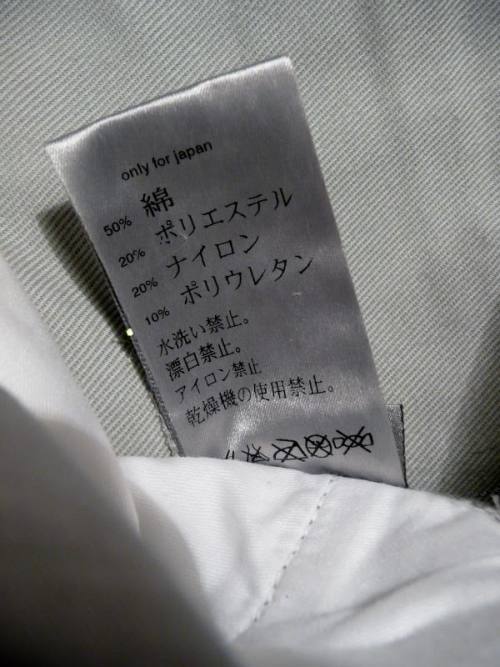 only for japan
50% 綿
20% ポリエステル
20% ナイロン
10% ポリウレタン
水洗い禁止。
漂白禁止。
アイロン禁止
乾燥機の使用禁止。